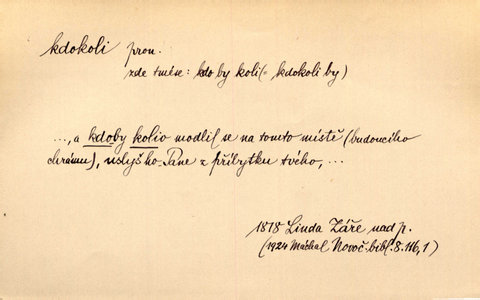 kdokoli pron.
zde tmése: kdo by koli (= kdokoli by)
..., a kdoby koliv modlil se na tomto místě (budoucího
chrámu), uslyš ho Pane z příbytku tvého, ...
1818 Linda Záře nad p.
(1924 Máchal Novoč. bibl. 8. 116, 1)